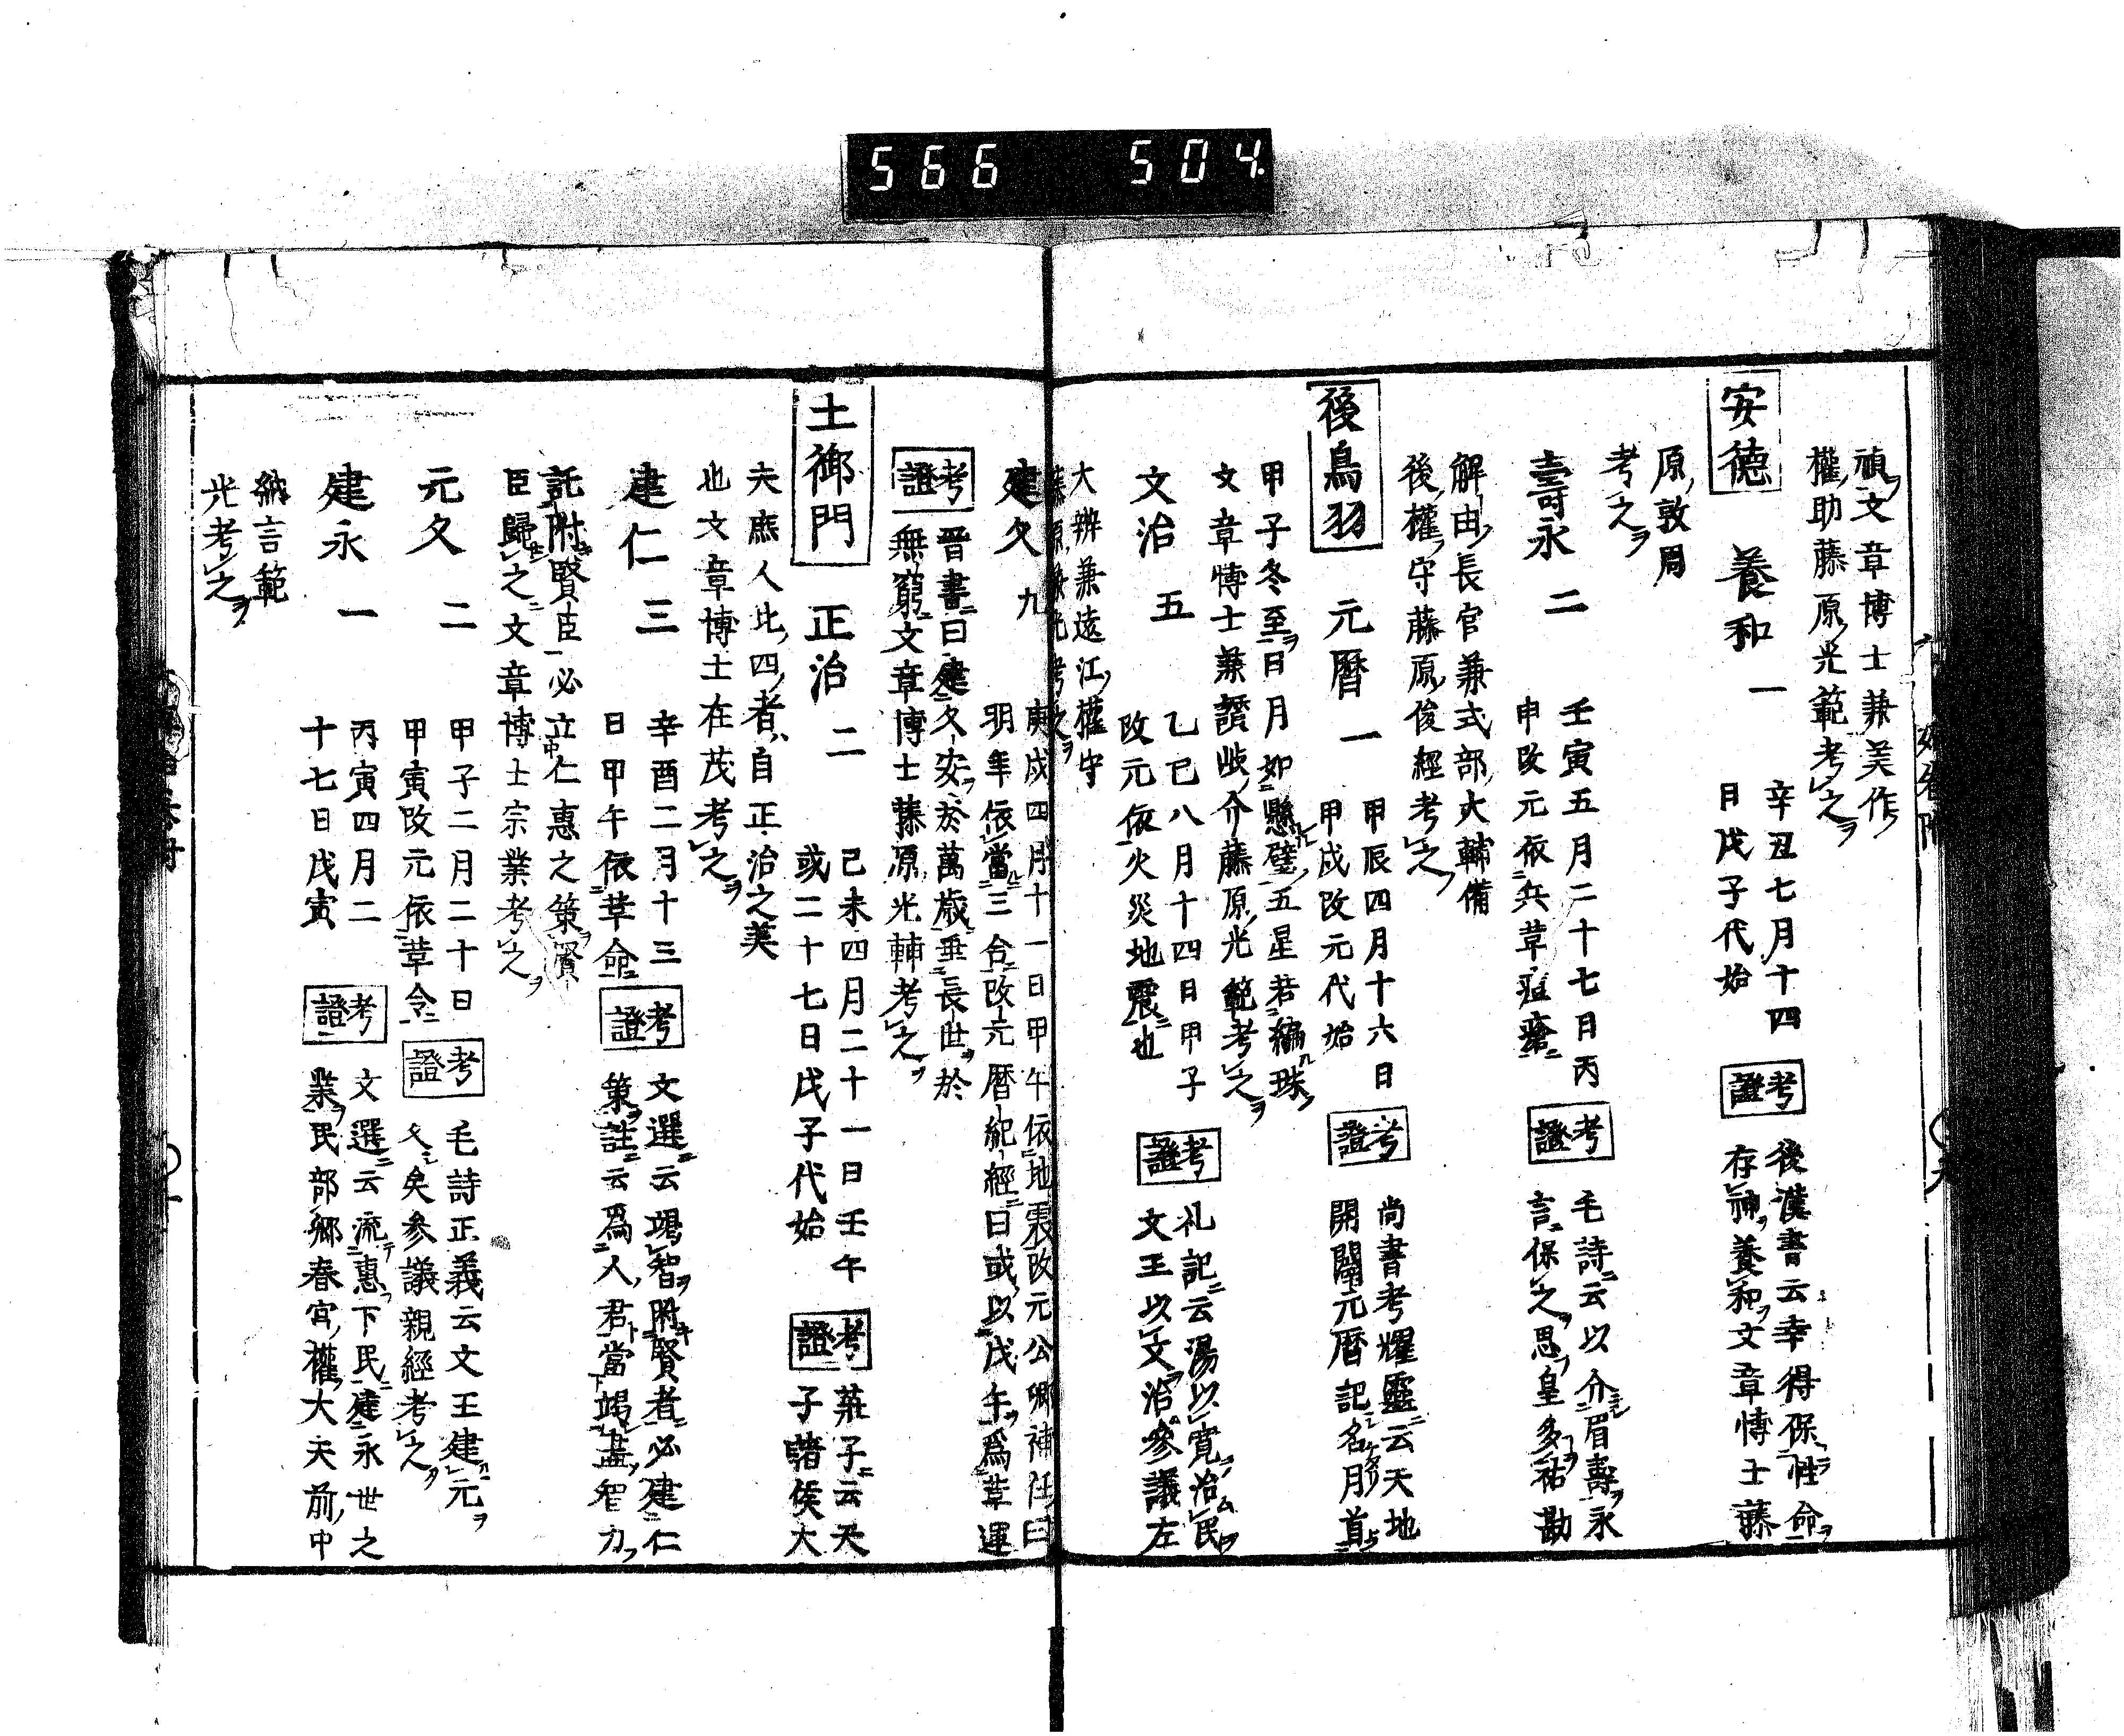 566 504.
禎文章博士兼美作
權助藤原光範考之
安徳 養和 一
辛丑七月十四
日戊子代始
考證
後漢書云幸得保性命
存神養和文章博士藤
原敦周
考之
壽永 二
壬寅五月二十七日丙
申改元依兵革疫癘
考證
毛詩云以介眉壽永
言保之思皇多祜勘
解由長官兼式部大輔備
後權守藤原俊經考之
後鳥羽 元暦 一
甲辰四月十六日
甲戌改元代始
考證
尚書考耀靈云天地
開闢元暦記名月首
甲子冬至日月如懸璧五星若編珠
文章博士兼讃岐介藤原光範考之
文治 五
乙巳八月十四日甲子
改元依火災地震也
考證
礼記云湯以寛治民
文王以文治參議左
大辨兼遠江權守
藤原兼光考之
建久 九
庚戌四月十一日甲午依地震改元公卿補任曰
明年依當三合改元暦紀經曰或以戊午爲革運
考證
晋書曰建久安於萬歳垂長世於
無窮文章博士藤原光輔考之
土御門 正治 二
己未四月二十一日壬午
或二十七日戊子代始
考證
莊子云天
子諸侯大
夫庶人此四者自正治之美
也文章博士在茂考之
建仁 三
辛酉二月十三
日甲午依革命
考證
文選云竭智附賢者必建仁
策註云爲人君當竭盡智力
託附賢臣必立仁惠之策賢
臣歸之文章博士宗業考之
元久 二
甲子二月二十日
甲寅改元依革令
考證
毛詩正義云文王建元
久矣參議親經考之
建永 一
丙寅四月二
十七日戊寅
考證
文選云流惠下民建永世之
業民部卿春宮權大夫前中
納言範
光考之